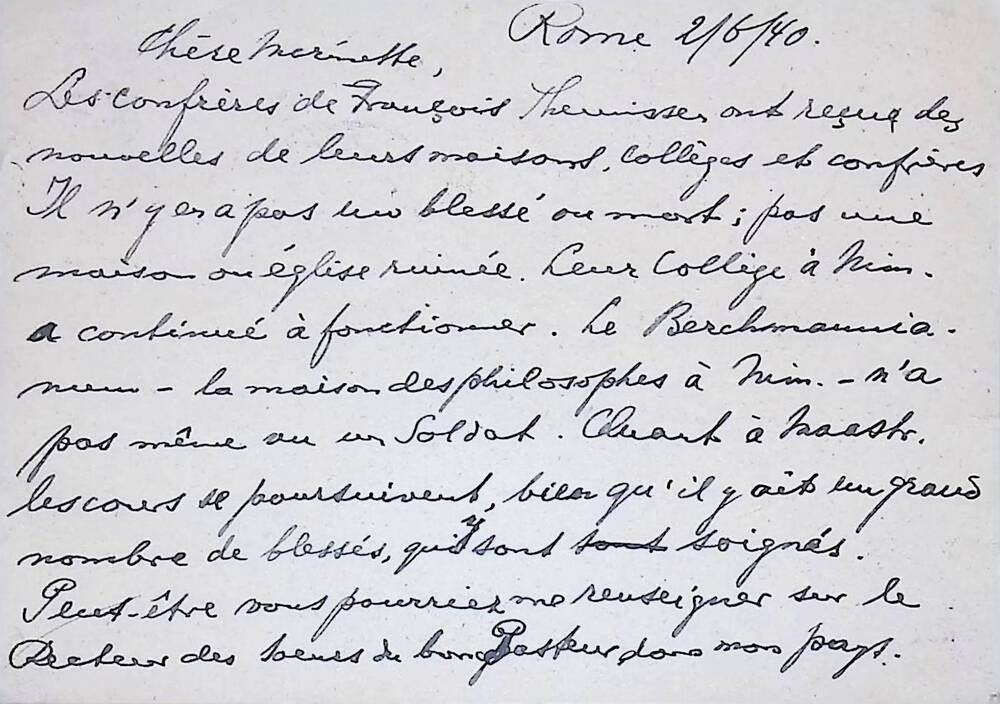 Rome 2/6/40.
Chère Marinette,
Les confrères de François Theunissen ont reçue des
nouvelles de leurs maisons, collèges et confrères
Il n'y en a pas un blessé ou mort; pas une
maison ou église ruinée. Leur Collège à Nim.
a continué à fonctionner. Le Berchmannia-
num - la maison des philosophes à Nim. - n'a
pas même vu un Soldat. Quant à Maastr.
les cours se poursuivent, bien qu'il y ait un grand
nombre de blessés, qui y sont sont soignés.
Peut-être vous pourriez me renseigner sur le
Recteur des soeurs du bon Pasteur dans mon pays.